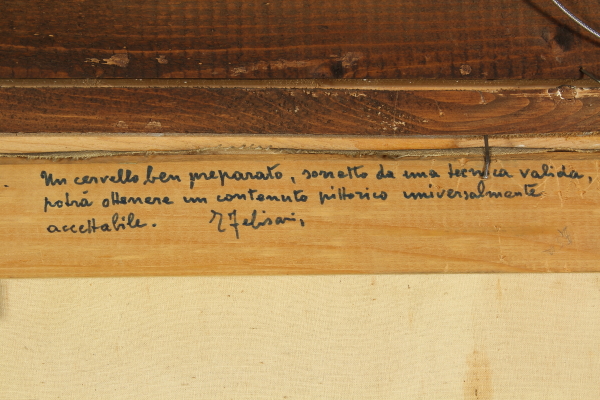 Un cervello ben preparato, sorretto da una tecnica valida,
potrà ottenere un contenuto pittorico universalmente
accettabile.